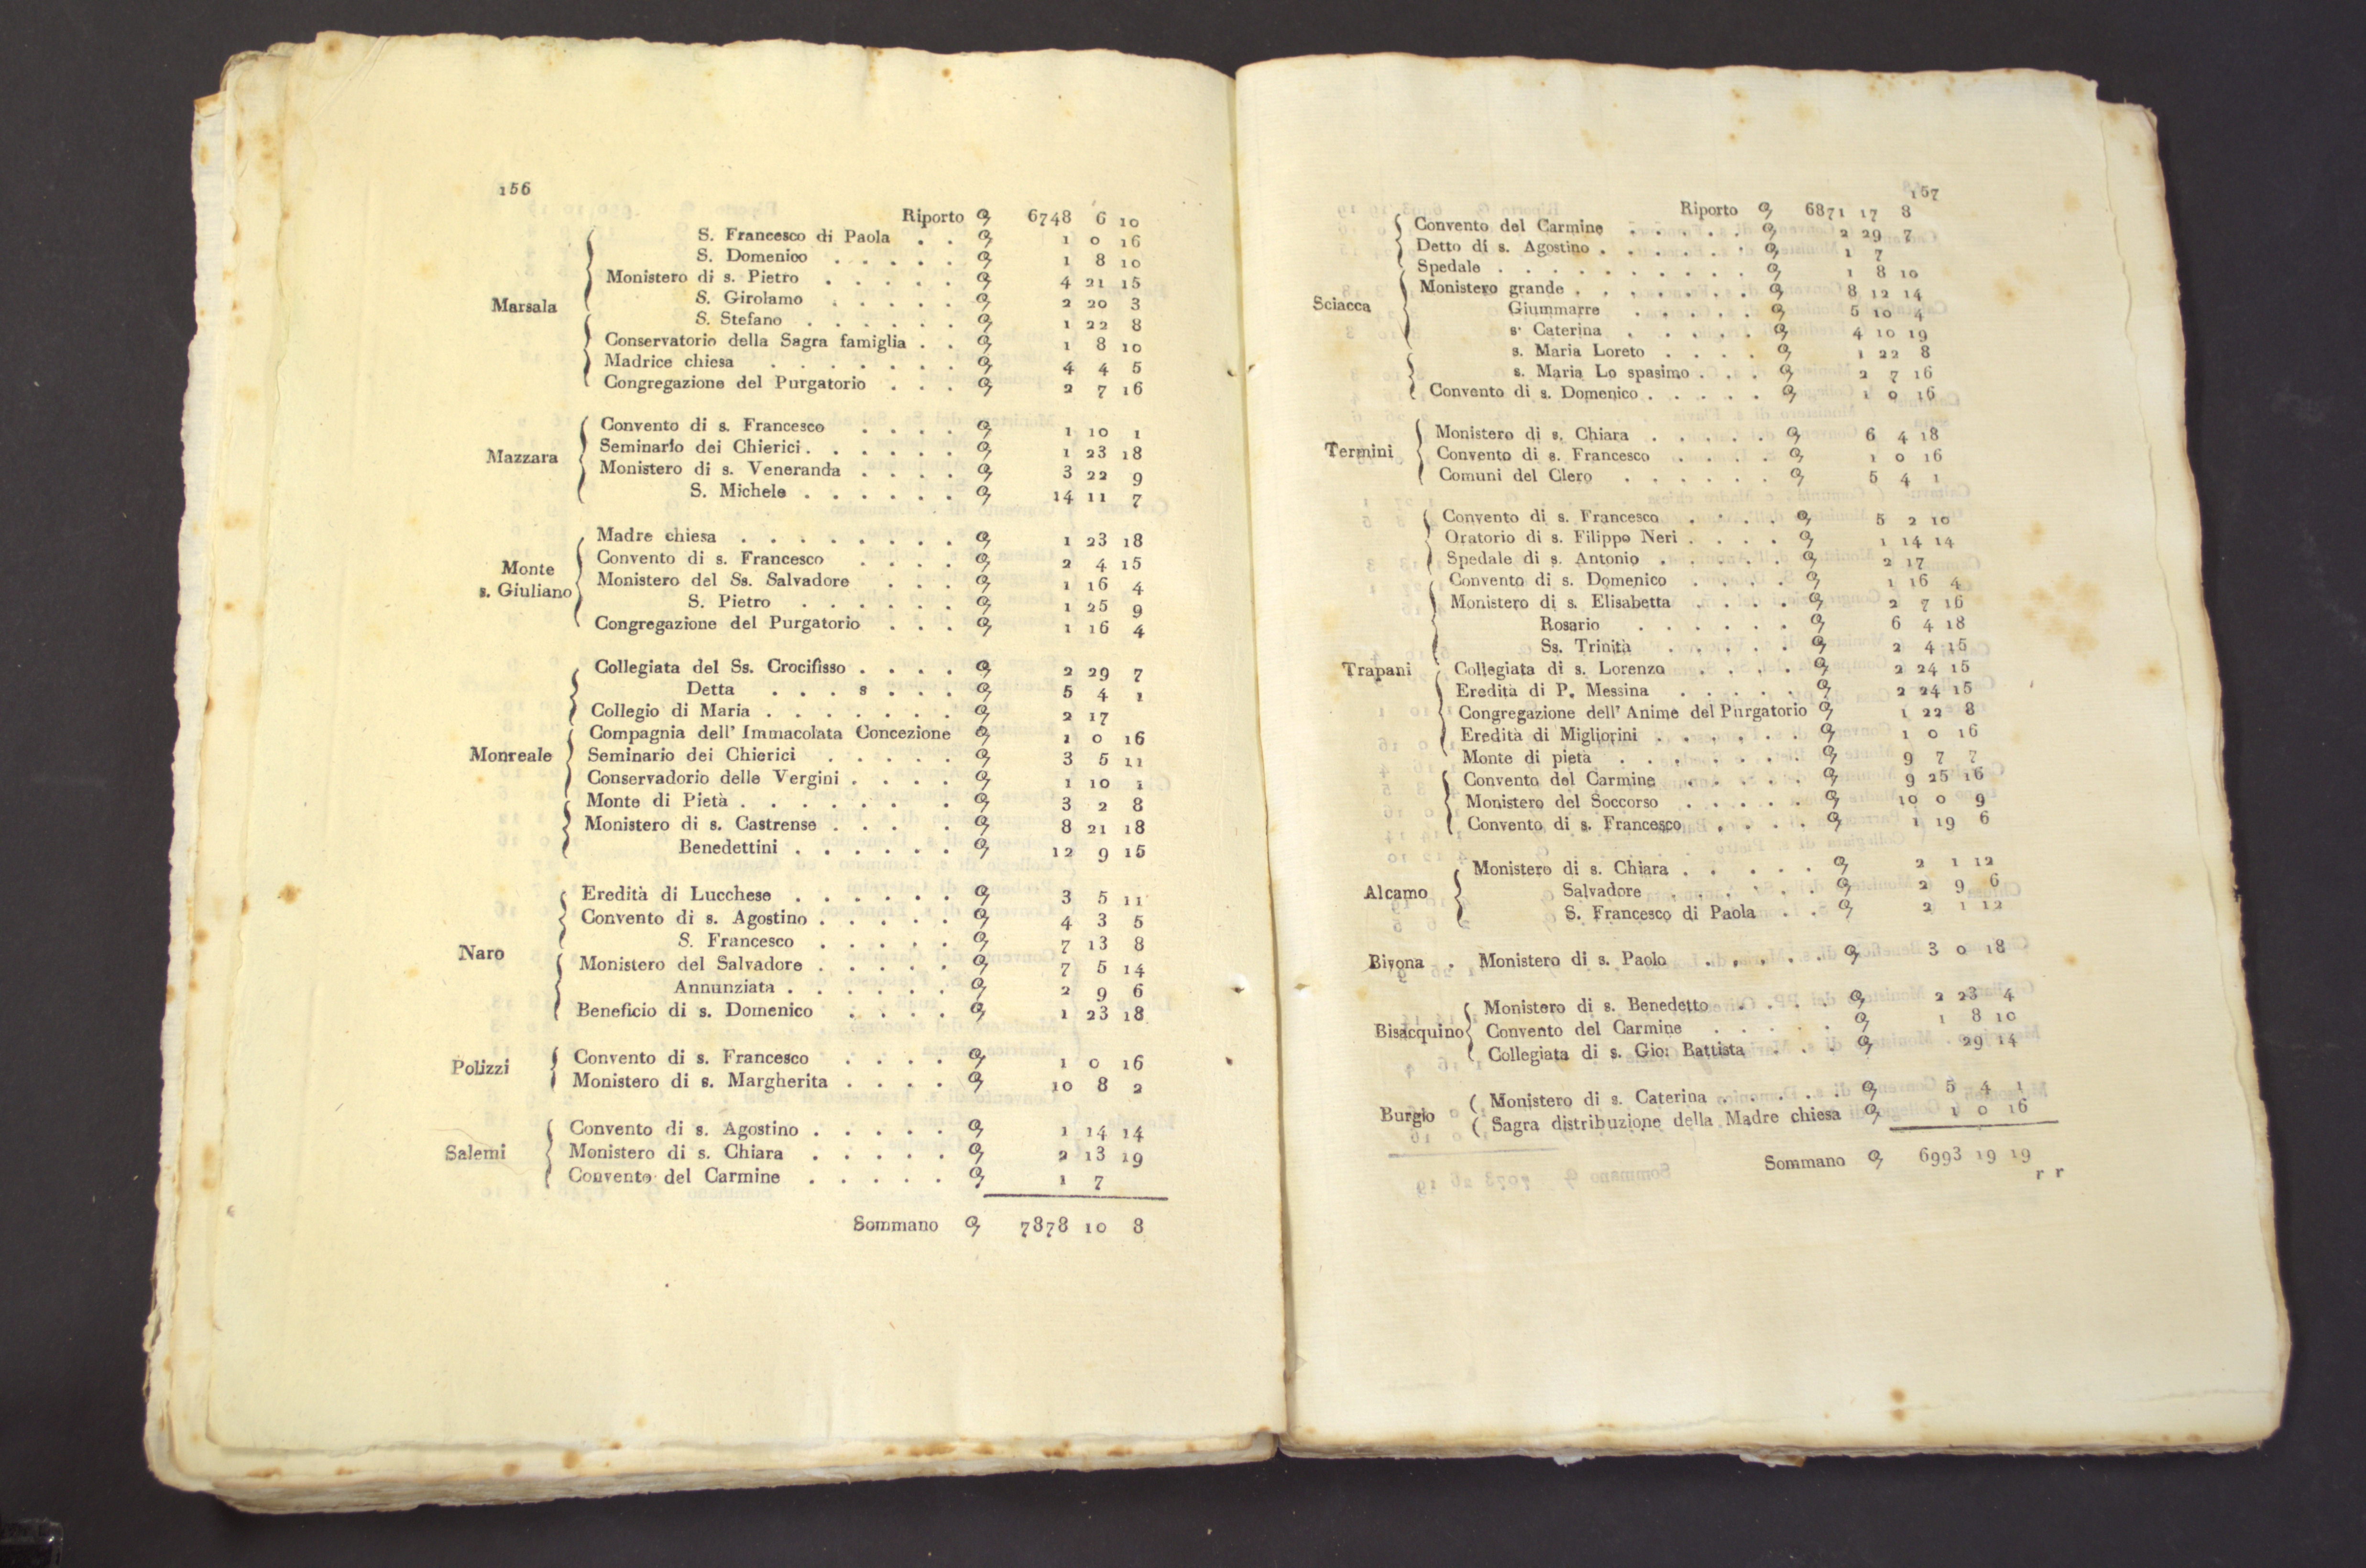 156
Riporto 6748 6 10
S. Francesco di Paola . . 1 0 16
S. Domenico . . . . . 1 8 10
Monistero di s. Pietro . . . . . 4 21 15
Marsala S. Girolamo . . . . . 2 20 3
S. Stefano . . . . . . 1 22 8
Conservatorio della Sagra famiglia . . 1 8 10
Madrice chiesa . . . . . . . 4 4 5
Congregazione del Purgatorio . . . 2 7 16
Convento di s. Francesco . . . . 1 10 1
Seminario dei Chierici . . . . . . 1 23 18
Mazzara Monistero di s. Veneranda . . . . 3 22 9
S. Michele . . . . . . 14 11 7
Madre chiesa . . . . . . . . 1 23 18
Convento di s. Francesco . . . . 2 4 15
Monte s. Giuliano Monistero del Ss. Salvadore . . . 1 16 4
S. Pietro . . . . . . 1 25 9
Congregazione del Purgatorio . . . 1 16 4
Collegiata del Ss. Crocifisso . . . . 2 29 7
Detta . . . s . . . 5 4 1
Collegio di Maria . . . . . . . 2 17
Compagnia dell' Immacolata Concezione 1 0 16
Monreale Seminario dei Chierici . . . . . 3 5 11
Conservadorio delle Vergini . . . . 1 10 1
Monte di Pietà . . . . . . . 3 2 8
Monistero di s. Castrense . . . . . 8 21 18
Benedettini . . . . . . 12 9 15
Eredità di Lucchese . . . . . . 3 5 11
Convento di s. Agostino . . . . . 4 3 5
S. Francesco . . . . . 7 13 8
Naro Monistero del Salvadore . . . . . 7 5 14
Annunziata . . . . . . 2 9 6
Beneficio di s. Domenico . . . . 1 23 18
Polizzi Convento di s. Francesco . . . . 1 0 16
Monistero di s. Margherita . . . . 10 8 2
Convento di s. Agostino . . . . . 1 14 14
Salemi Monistero di s. Chiara . . . . . 2 13 19
Convento del Carmine . . . . . 1 7
Sommano 7878 10 8
157
Riporto 6871 17 8
Convento del Carmine . . . . . 2 29 7
Detto di s. Agostino . . . . . . 1 7
Spedale . . . . . . . . . . 1 8 10
Monistero grande . . . . . . . 8 12 14
Sciacca Giummarre . . . . . 5 10 4
s. Caterina . . . . . 4 10 19
s. Maria Loreto . . . . 1 22 8
s. Maria Lo spasimo . . . 2 7 16
Convento di s. Domenico . . . . . 1 0 16
Monistero di s. Chiara . . . . . 6 4 18
Termini Convento di s. Francesco . . . . 1 0 16
Comuni del Clero . . . . . . 5 4 1
Convento di s. Francesco . . . . 5 2 10
Oratorio di s. Filippo Neri . . . . 1 14 14
Spedale di s. Antonio . . . . . 2 17
Convento di s. Domenico . . . . 1 16 4
Monistero di s. Elisabetta . . . . 2 7 16
Rosario . . . . . . 6 4 18
Ss. Trinità . . . . . 2 4 15
Trapani Collegiata di s. Lorenzo . . . . 2 24 15
Eredità di P. Messina . . . . . 2 24 15
Congregazione dell' Anime del Purgatorio 1 22 8
Eredità di Migliorini . . . . . . 1 0 16
Monte di pietà . . . . . . . 9 7 7
Convento del Carmine . . . . . 9 25 16
Monistero del Soccorso . . . . . 10 0 9
Convento di s. Francesco . . . . 1 19 6
Monistero di s. Chiara . . . . . 2 1 12
Alcamo Salvadore . . . . . . 2 9 6
S. Francesco di Paola . . 2 1 12
Bivona . Monistero di s. Paolo . . . . . 3 0 18
Monistero di s. Benedetto . . . . 2 23 4
Bisacquino Convento del Carmine . . . . . 1 8 10
Collegiata di s. Gio: Battista . . . 29 14
Burgio Monistero di s. Caterina . . . . . 5 4 1
Sagra distribuzione della Madre chiesa 1 0 16
Sommano 6993 19 19
r r